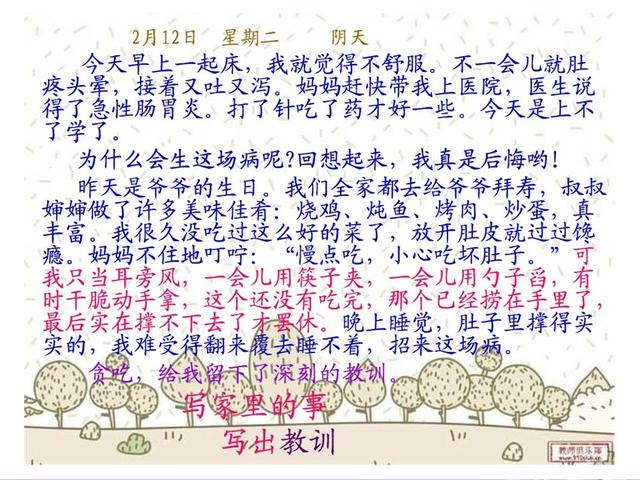 2月12日 星期二 阴天
今天早上一起床，我就觉得不舒服。不一会儿就肚
疼头晕，接着又吐又泻。妈妈赶快带我上医院，医生说
得了急性肠胃炎。打了针吃了药才好一些。今天是上不
了学了。
为什么会生这场病呢?回想起来，我真是后悔哟！
昨天是爷爷的生日。我们全家都去给爷爷拜寿，叔叔
婶婶做了许多美味佳肴：烧鸡、炖鱼、烤肉、炒蛋，真
丰富。我很久没吃过这么好的菜了，放开肚皮就过过馋
瘾。妈妈不住地叮咛：“慢点吃，小心吃坏肚子。”可
我只当耳旁风，一会儿用筷子夹，一会儿用勺子舀，有
时干脆动手拿，这个还没有吃完，那个已经捞在手里了，
最后实在撑不下去了才罢休。晚上睡觉，肚子里撑得实
实的，我难受得翻来覆去睡不着，招来这场病。
贪吃，给我留下了深刻的教训。
写家里的事
写出教训
教师俱乐部
www.910club.cn